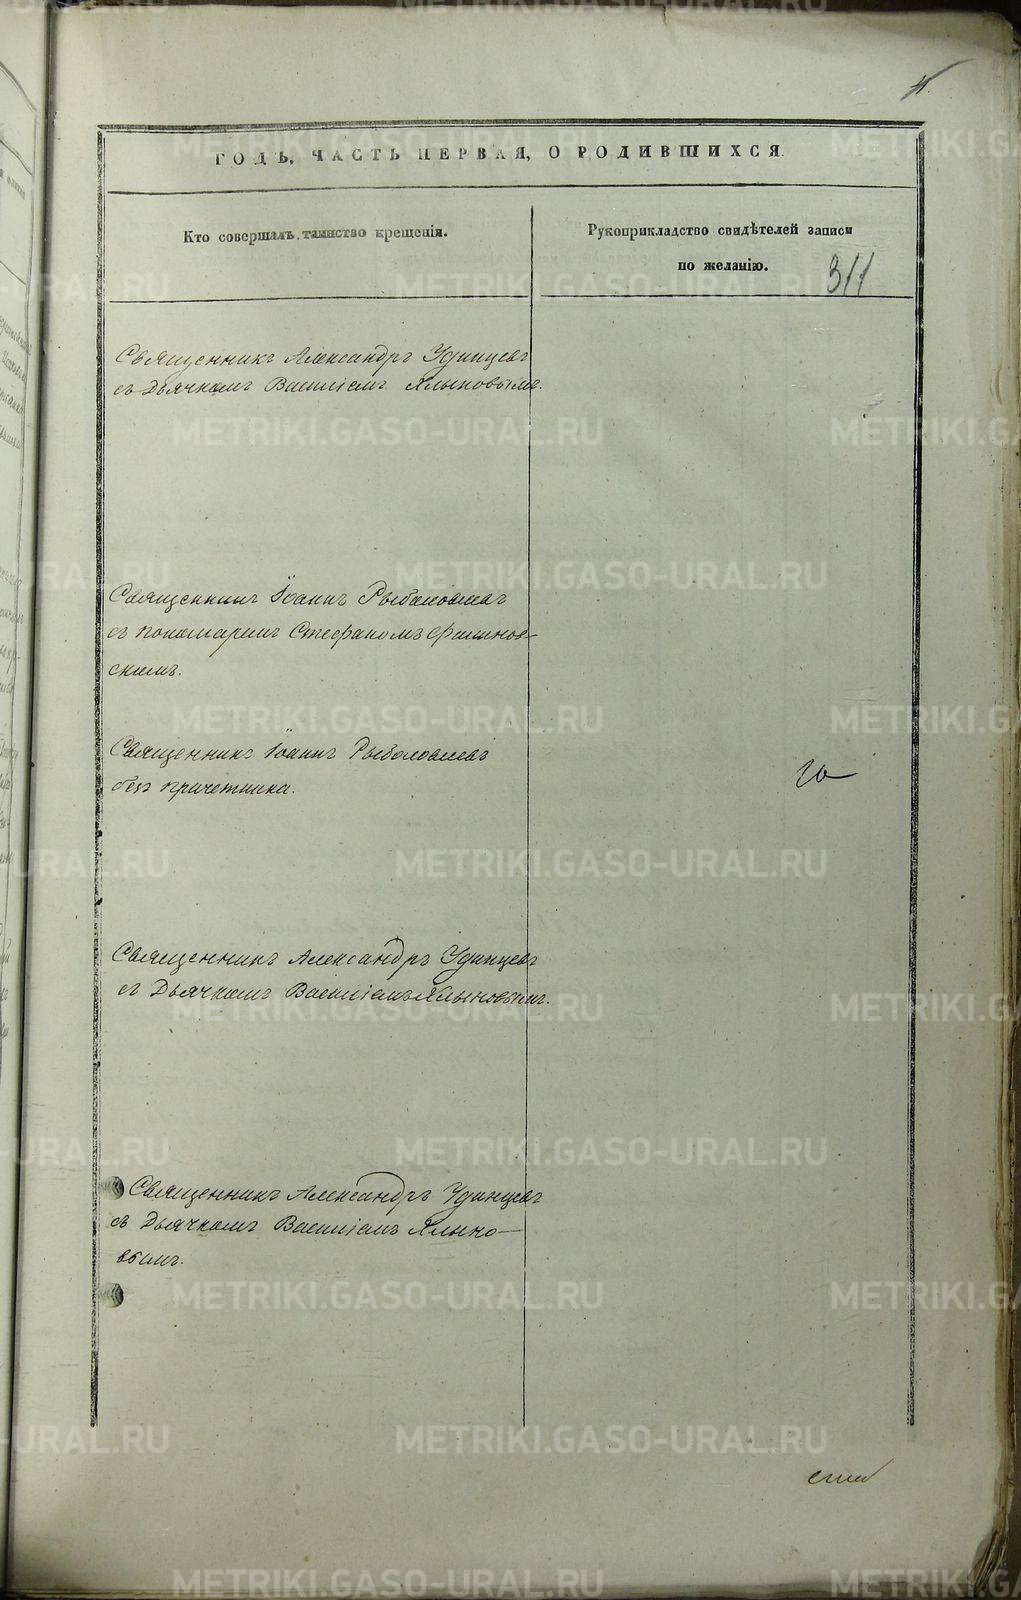 ГОДЪ, ЧАСТЬ ПЕРВАЯ, О РОДИВШИХСЯ.
Кто совершалъ таинство крещенія.
Рукоприкладство свидѣтелей записи
по желанію.
311
Священникъ Александръ Удинцевъ
съ Дьячкомъ Василіемъ Хлыновымъ.
Священникъ Іоаннъ Рыболовлевъ
съ пономаремъ Стефаномъ
скимъ.
Священникъ Іоаннъ Рыболовлевъ
безъ причетника.
Священникъ Александръ Удинцевъ
съ Дьячкомъ Василіемъ Хлыновымъ.
Священникъ Александръ Удинцевъ
съ Дьячкомъ Василіемъ Хлыно-
вымъ.
METRIKI.GASO-URAL.RU